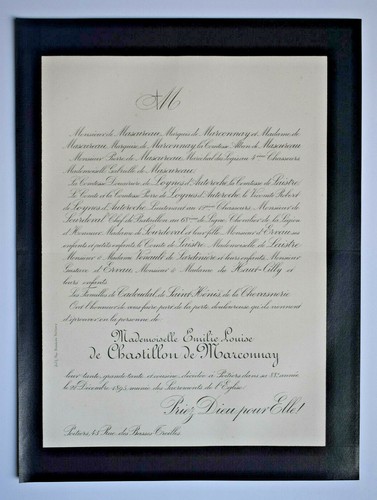 M
Monsieur de Mascureau, Marquis de Marconnay et Madame de
Mascureau, Marquise de Marconnay, la Comtesse Alban de Mascureau
Monsieur Pierre de Mascureau, Maréchal des Logis au 4ème Chasseurs
Mademoiselle Gabrielle de Mascureau;
La Comtesse Douairière de Loynes d'Auteroche, la Comtesse de Luistre
Le Comte et la Comtesse Pierre de Loynes d'Auteroche, le Vicomte Robert
de Loynes d'Auteroche, Lieutenant au Chasseurs, Monsieur de
Sourdeval Chef de Bataillon au 68ème de Ligne, Chevalier de la Légion
d'Honneur, Madame de Sourdeval et leur fille, Monsieur d'Ervau, ses
enfants et petits enfants, le Comte de Luistre, Mademoiselle de Luistre
Monsieur et Madame Venault de Lardinière et leurs enfants, Monsieur
Gustave d'Ervau, Monsieur et Madame du Haut-Cilly et
leurs enfants
Les Familles de Cadoudal, de Saint Hénis, de la Chevasnerie
Ont l'honneur de vous faire part de la perte douloureuse qu'ils viennent
d'éprouver en la personne de
Mademoiselle Emilie Louise
de Chastillon de Marconnay
leur tante, grande tante, et cousine, décédée à Poitiers dans sa 88e année
le Décembre 1895, munie des Sacrements de l'Eglise.
Priez Dieu pour Elle!
Poitiers, 48 Rue des Basses Treilles